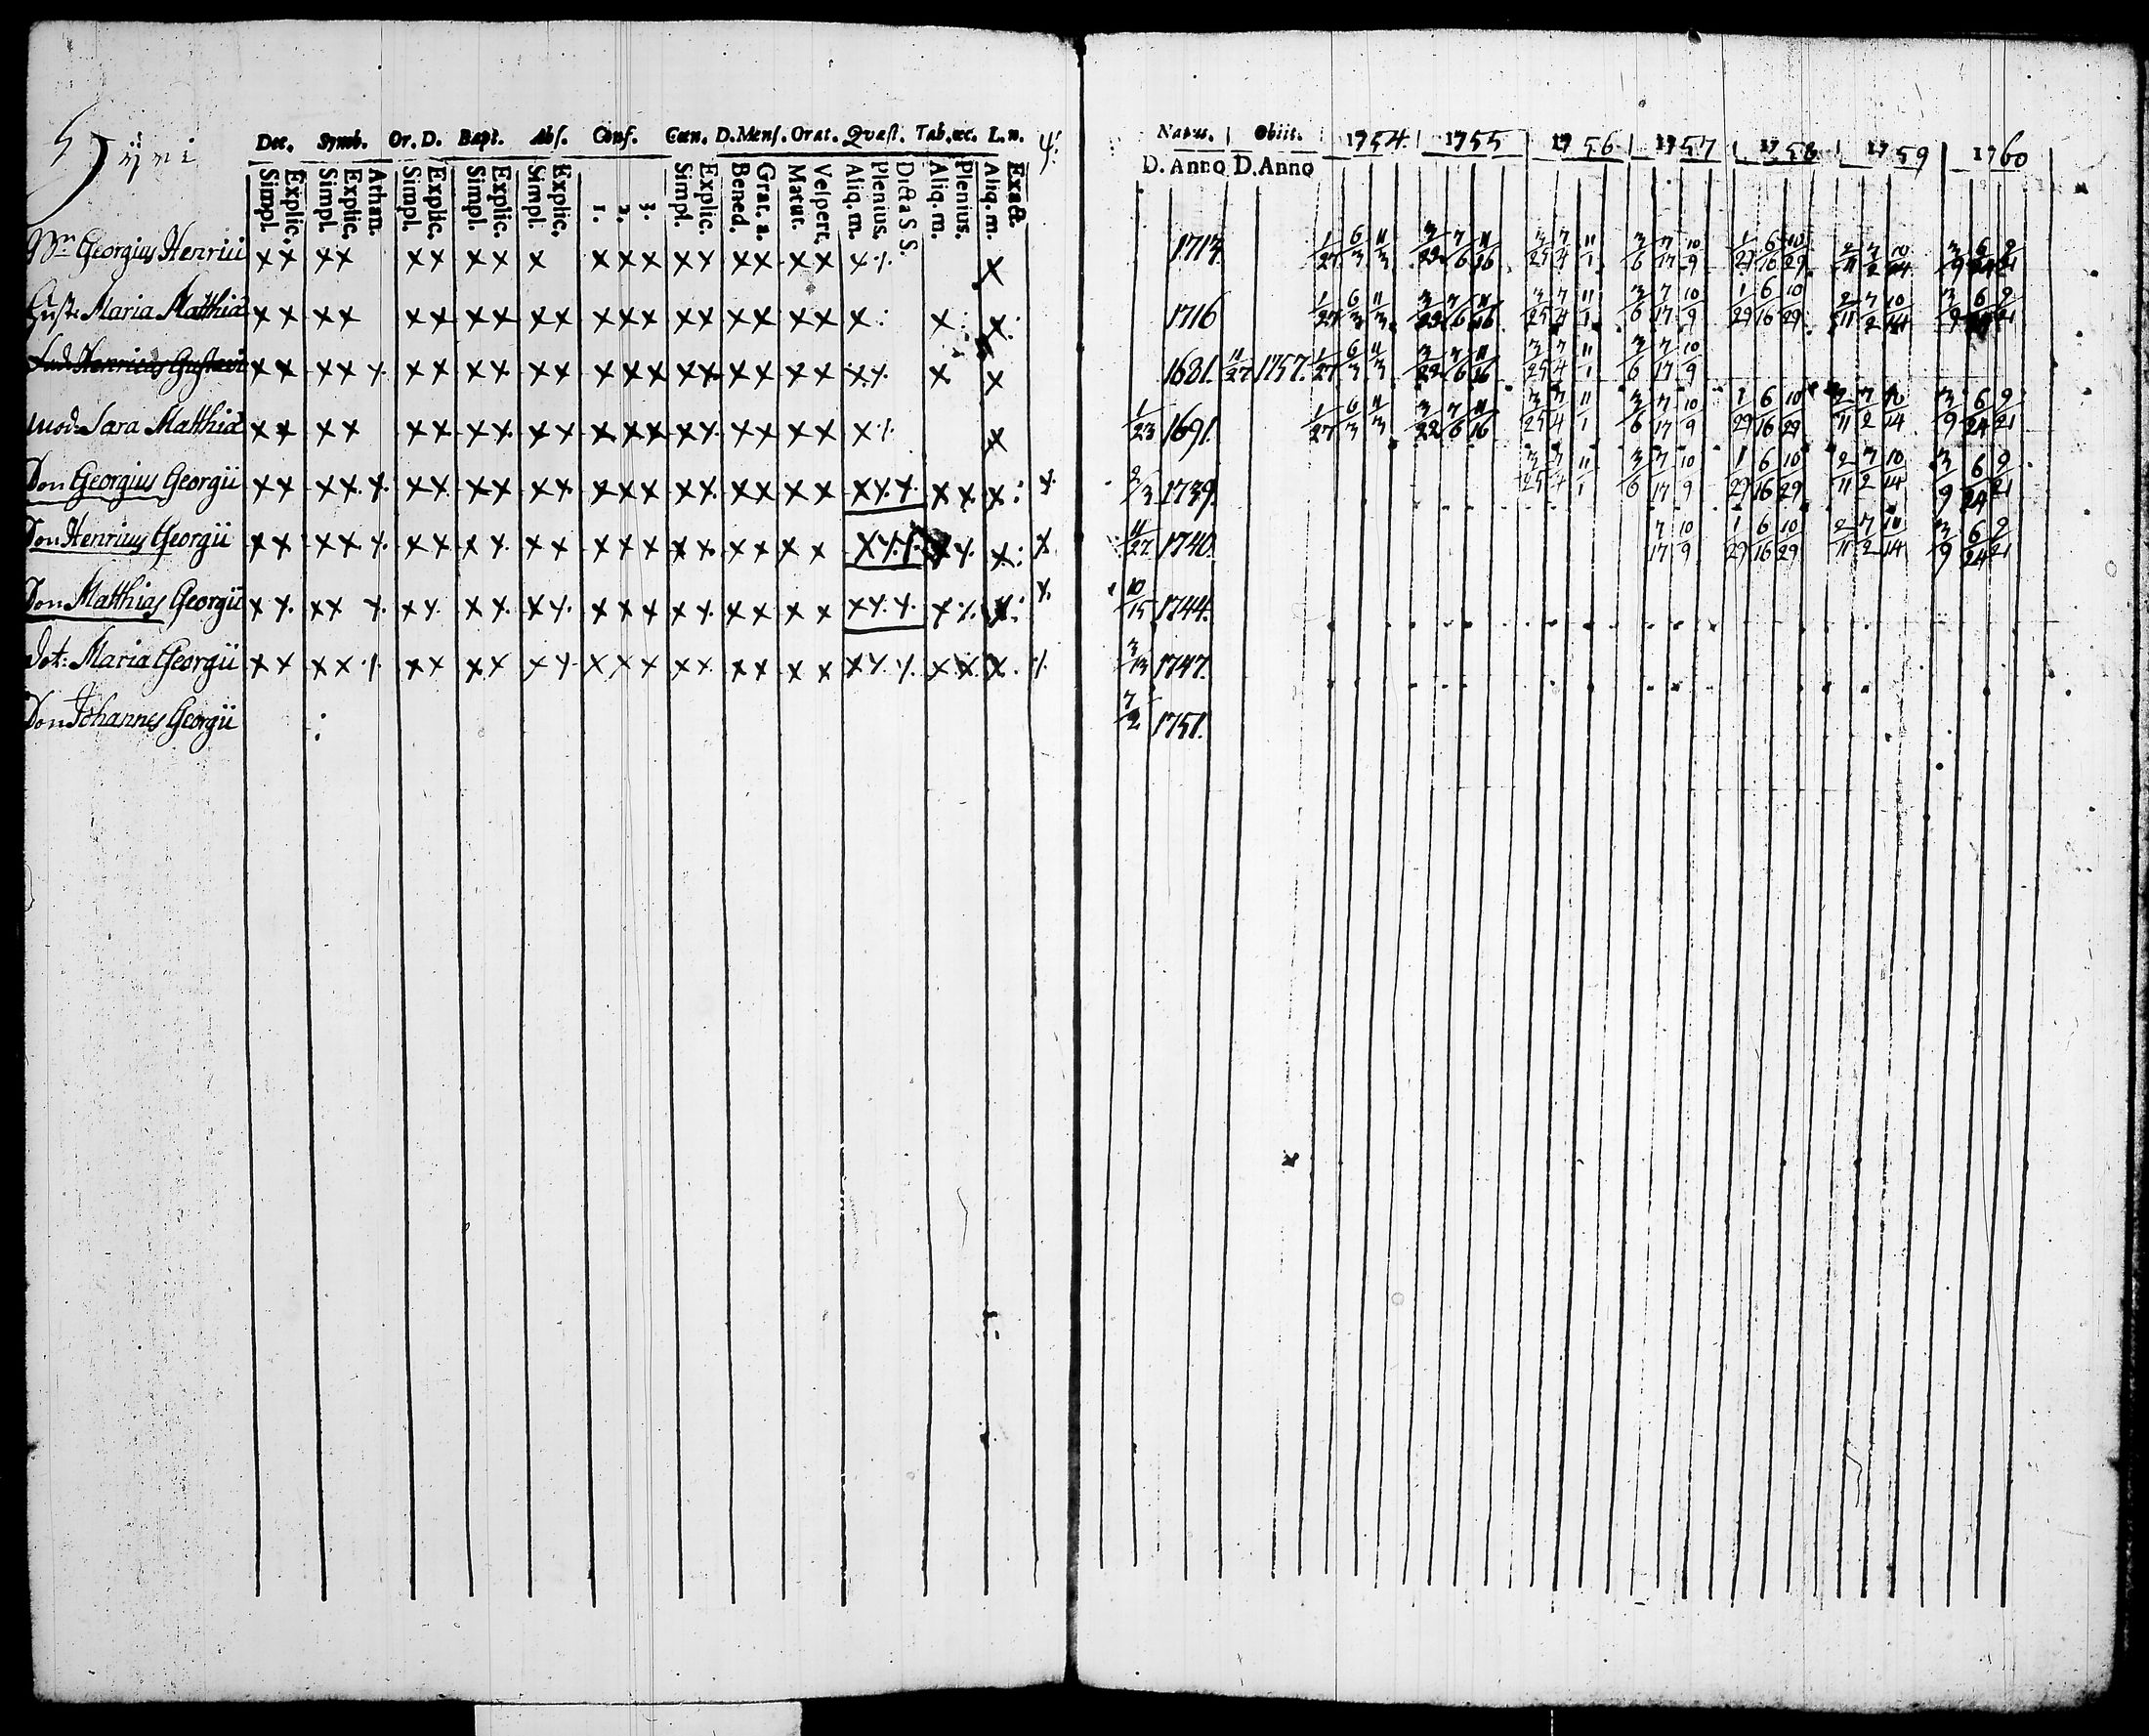 Dec. Symb. Or. D. Bapt. Abs. Conf. Cœn. D. Mens. Orat. Qvæst. Tab. œc. L. n. ψ.
Simpl. Explic. Simpl. Explic. Athan. Simpl. Explic. Simpl. Explic. Simpl. Explic. 1. 2. 3. Simpl. Explic. Bened. Grat. a. Matut. Vespert. Aliq. m. Plenius. Dicta S S. Aliq. m. Plenius. Aliq. m. Exact.
Georgius Henrici x x x x x x x x x x x x x x x x x x x x
Maria Matthiæ x x x x x x x x x x x x x x x x x x x x x
Henricus Gustavi x x x x x x x x x x x x x x x x x x x x x x x x
Sara Matthiæ x x x x x x x x x x x x x x x x x x x x x
Don Georgius Georgii x x x x x x x x x x x x x x x x x x x x x x x x x x x
Don Henricus Georgii x x x x x x x x x x x x x x x x x x x x x x x x x x x
Don Matthias Georgii x x x x x x x x x x x x x x x x x x x x x x x x x x x
Maria Georgii x x x x x x x x x x x x x x x x x x x x x x x x x x x
Don Johannes Georgii
Natus. Obiit. 1754. 1755 1756 1757 1758 1759 1760
D. Anno D. Anno
1713 1/27 6/3 11/3 3/22 7/6 11/16 3/25 7/4 11/1 3/6 7/17 10/9 1/29 6/16 10/29 2/11 7/2 10/14 3/9 6/24 9/21
1716 1/27 6/3 11/3 3/22 7/6 11/16 3/25 7/4 11/1 3/6 7/17 10/9 1/29 6/16 10/29 2/11 7/2 10/14 3/9 6/24 9/21
1681. 11/27 1757. 1/27 6/3 11/3 3/22 7/6 11/16 3/25 7/4 11/1 3/6 7/17 10/9
1/23 1691. 1/27 6/3 11/3 3/22 7/6 11/16 3/25 7/4 11/1 3/6 7/17 10/9 1/29 6/16 10/29 2/11 7/2 10/14 3/9 6/24 9/21
2/3 1739. 3/25 7/4 11/1 3/6 7/17 10/9 1/29 6/16 10/29 2/11 7/2 10/14 3/9 6/24 9/21
11/27 1740. 7/17 10/9 1/29 6/16 10/29 2/11 7/2 10/14 3/9 6/24 9/21
10/15 1744.
3/13 1747.
7/2 1751.